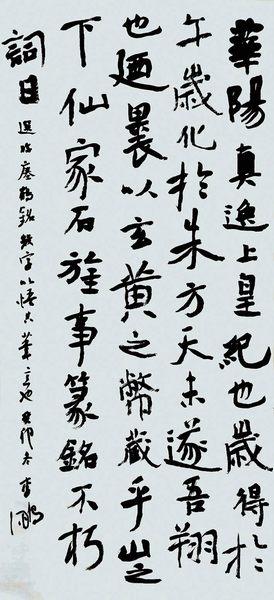 華陽真逸上皇紀也歲得於
午歲化於朱方天未遂吾翔
也廼裹以玄黃之幣藏乎山之
下仙家石旌事篆銘不朽
詞曰 選臨瘞鶴銘數字以悟其筆意也 癸卯冬 李鵬